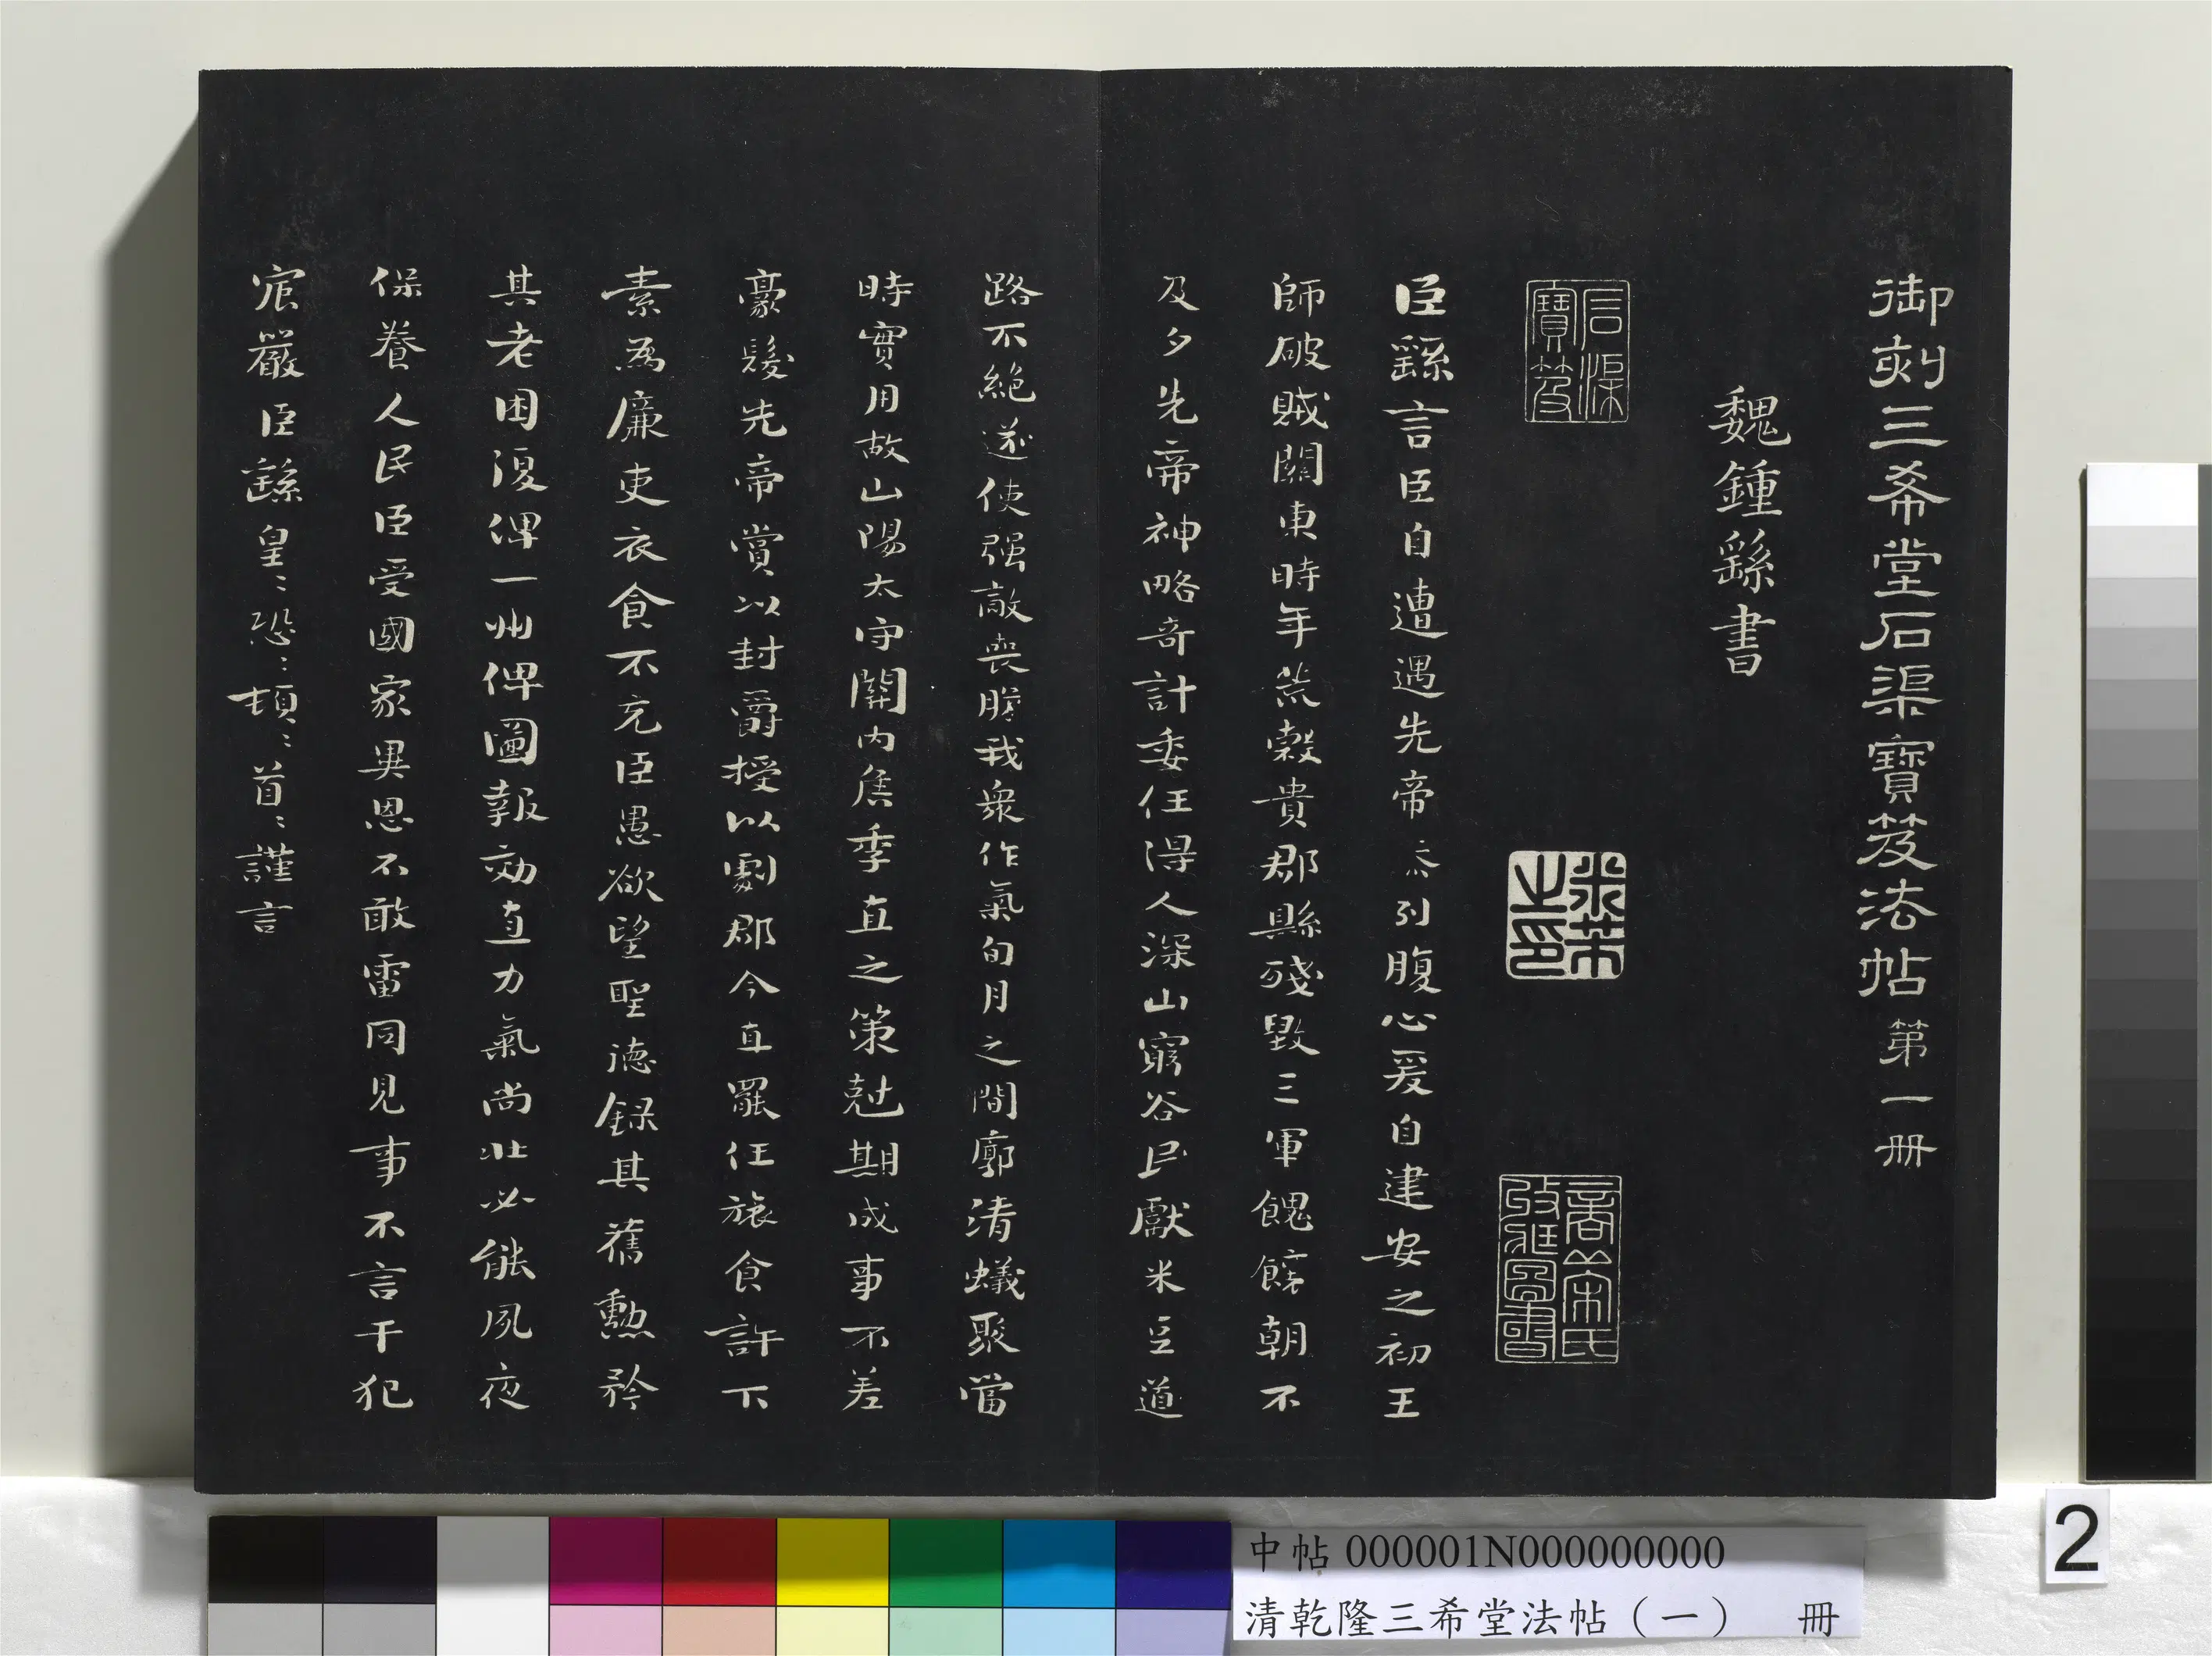 御刻三希堂石渠寶笈法帖第一冊
魏鍾繇書
石渠寶笈
米芾之印
商丘宋氏收藏圖書
臣繇言臣自遭遇先帝忝列腹心爰自建安之初王
師破賊關東時年荒穀貴郡縣殘毀三軍餽饟朝不
及夕先帝神略奇計委任得人深山窮谷民獻米豆道
路不絕遂使强敵喪膽我衆作氣旬月之間廓清蟻聚當
時實用故山陽太守關內侯季直之策尅期成事不差
豪髮先帝賞以封爵授以劇郡今直罷任旅食許下
素為廉吏衣食不充臣愚欲望聖德錄其舊勲矜
其老困復俾一州俾圖報効直力氣尚壯必能夙夜
保養人民臣受國家異恩不敢雷同見事不言干犯
宸嚴臣繇皇〻恐〻頓〻首〻謹言
中帖 000001N000000000
清乾隆三希堂法帖（一） 冊
2